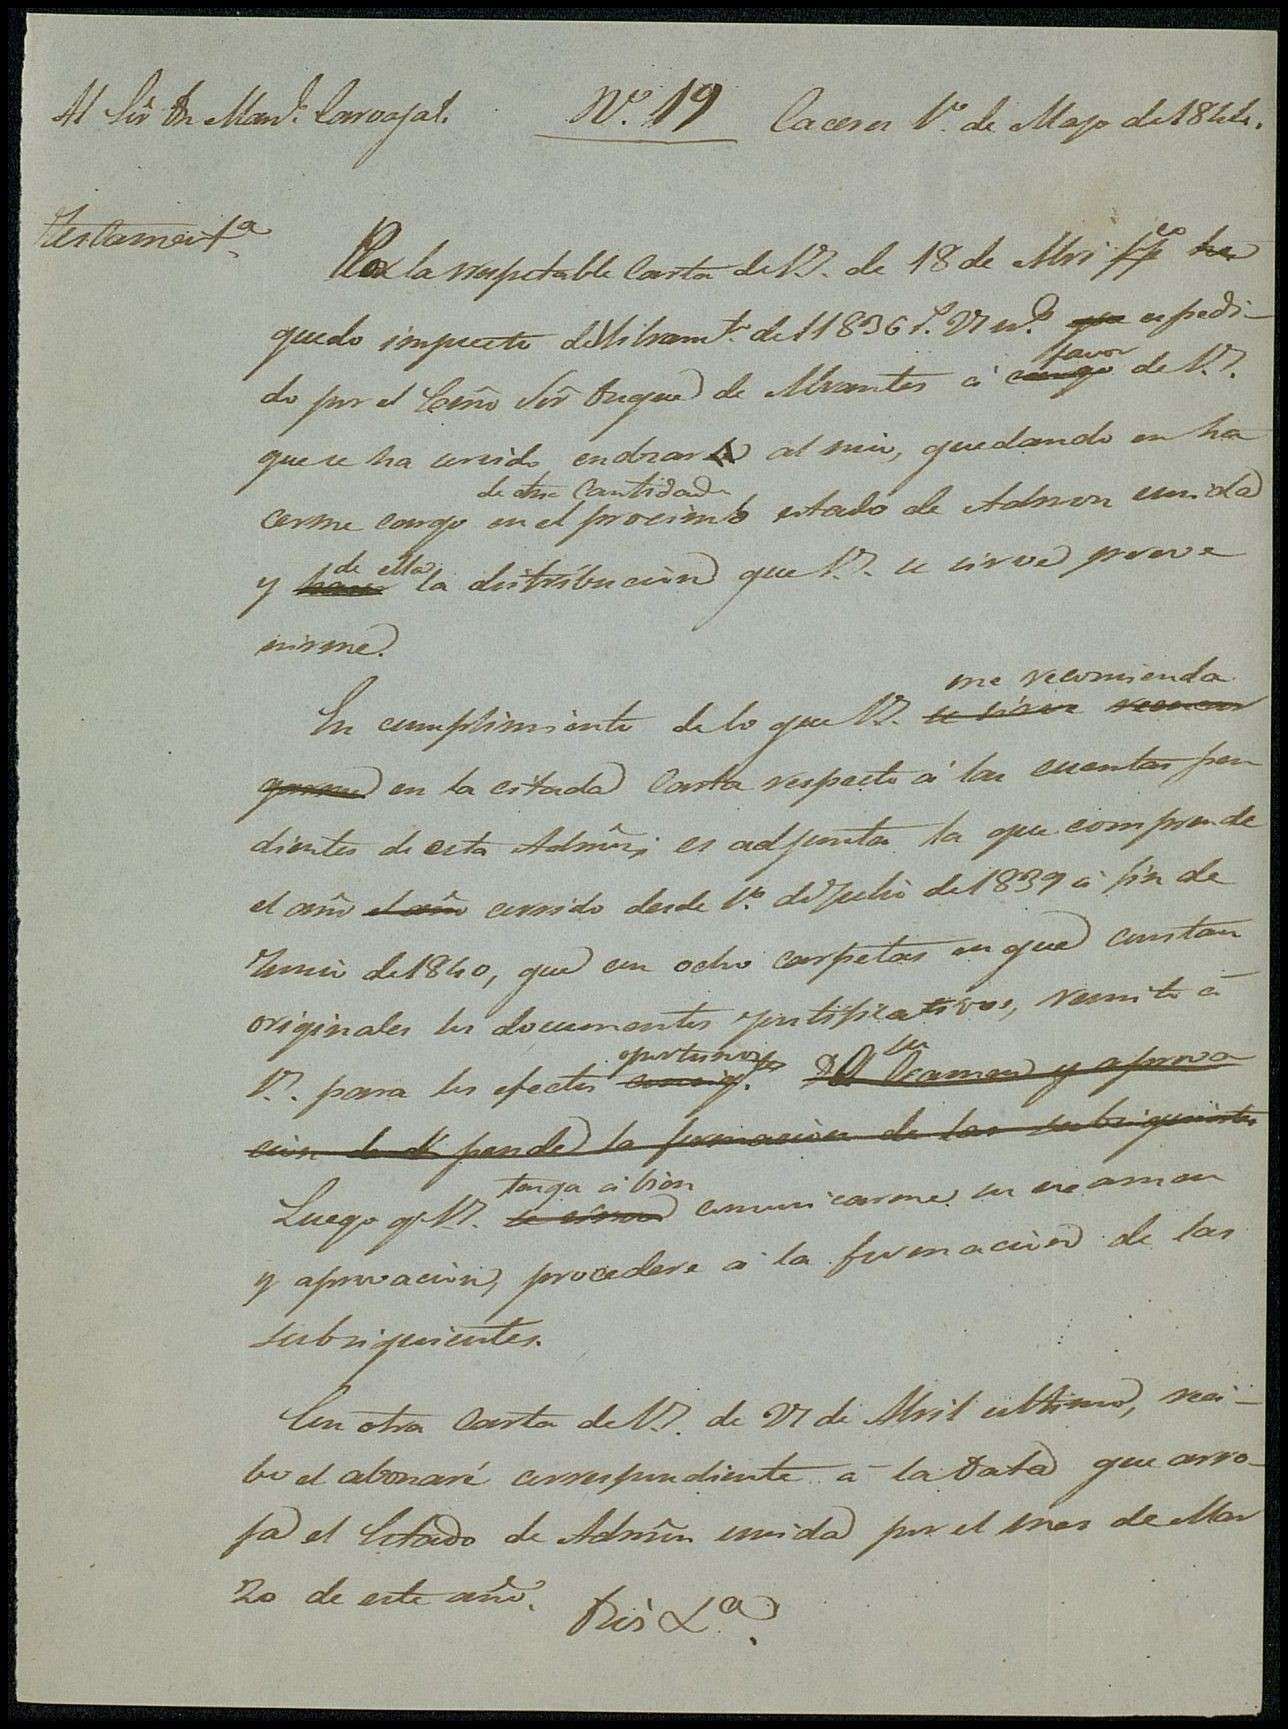 Al Sor Dn Manl. Carvajal.
No. 19
Caceres 1o. de Mayo de 1844.
Testamenta.
Por la respetable Carta de V. de 18 de Abri
quedo impuesto del libramto. de 11836 rs. 27 ms. que espedi-
do por el Escmo Sor Duque de Abrantes á cargo favor de V.
que se ha servido endozar al mio, quedando en ha
de dha Cantidad
cerme cargo en el procsimo estado de Admon unida
y hacer de ella la distribucion que V. se sirve preve
nirme.
me recomienda
En cumplimiento de lo que V. se sirve
en la citada Carta respecto á las cuentas pen
dientes de esta Admon, es adjunta la que comprende
el año el año corrido desde 1o. de Julio de 1839 á fin de
Junio de 1840, que en ocho carpetas en que constan
originales los documentos justificativos, remito á
V. para los efectos oportunos su Ecsamen y aprova
cion de pende la formacion de las subsiguientes
tenga á bien
Luego q. V. se sirva comunicarme su ecsamen
y aprovacion, procedere á la formacion de las
subsiguientes.
Con otra Carta de V. de 27 de Abril ultimo, reci-
bo el abonaré correspondiente á la Data que arro-
ja el Estado de Admon unida por el mes de Mar
zo de este año.
Dios &a.